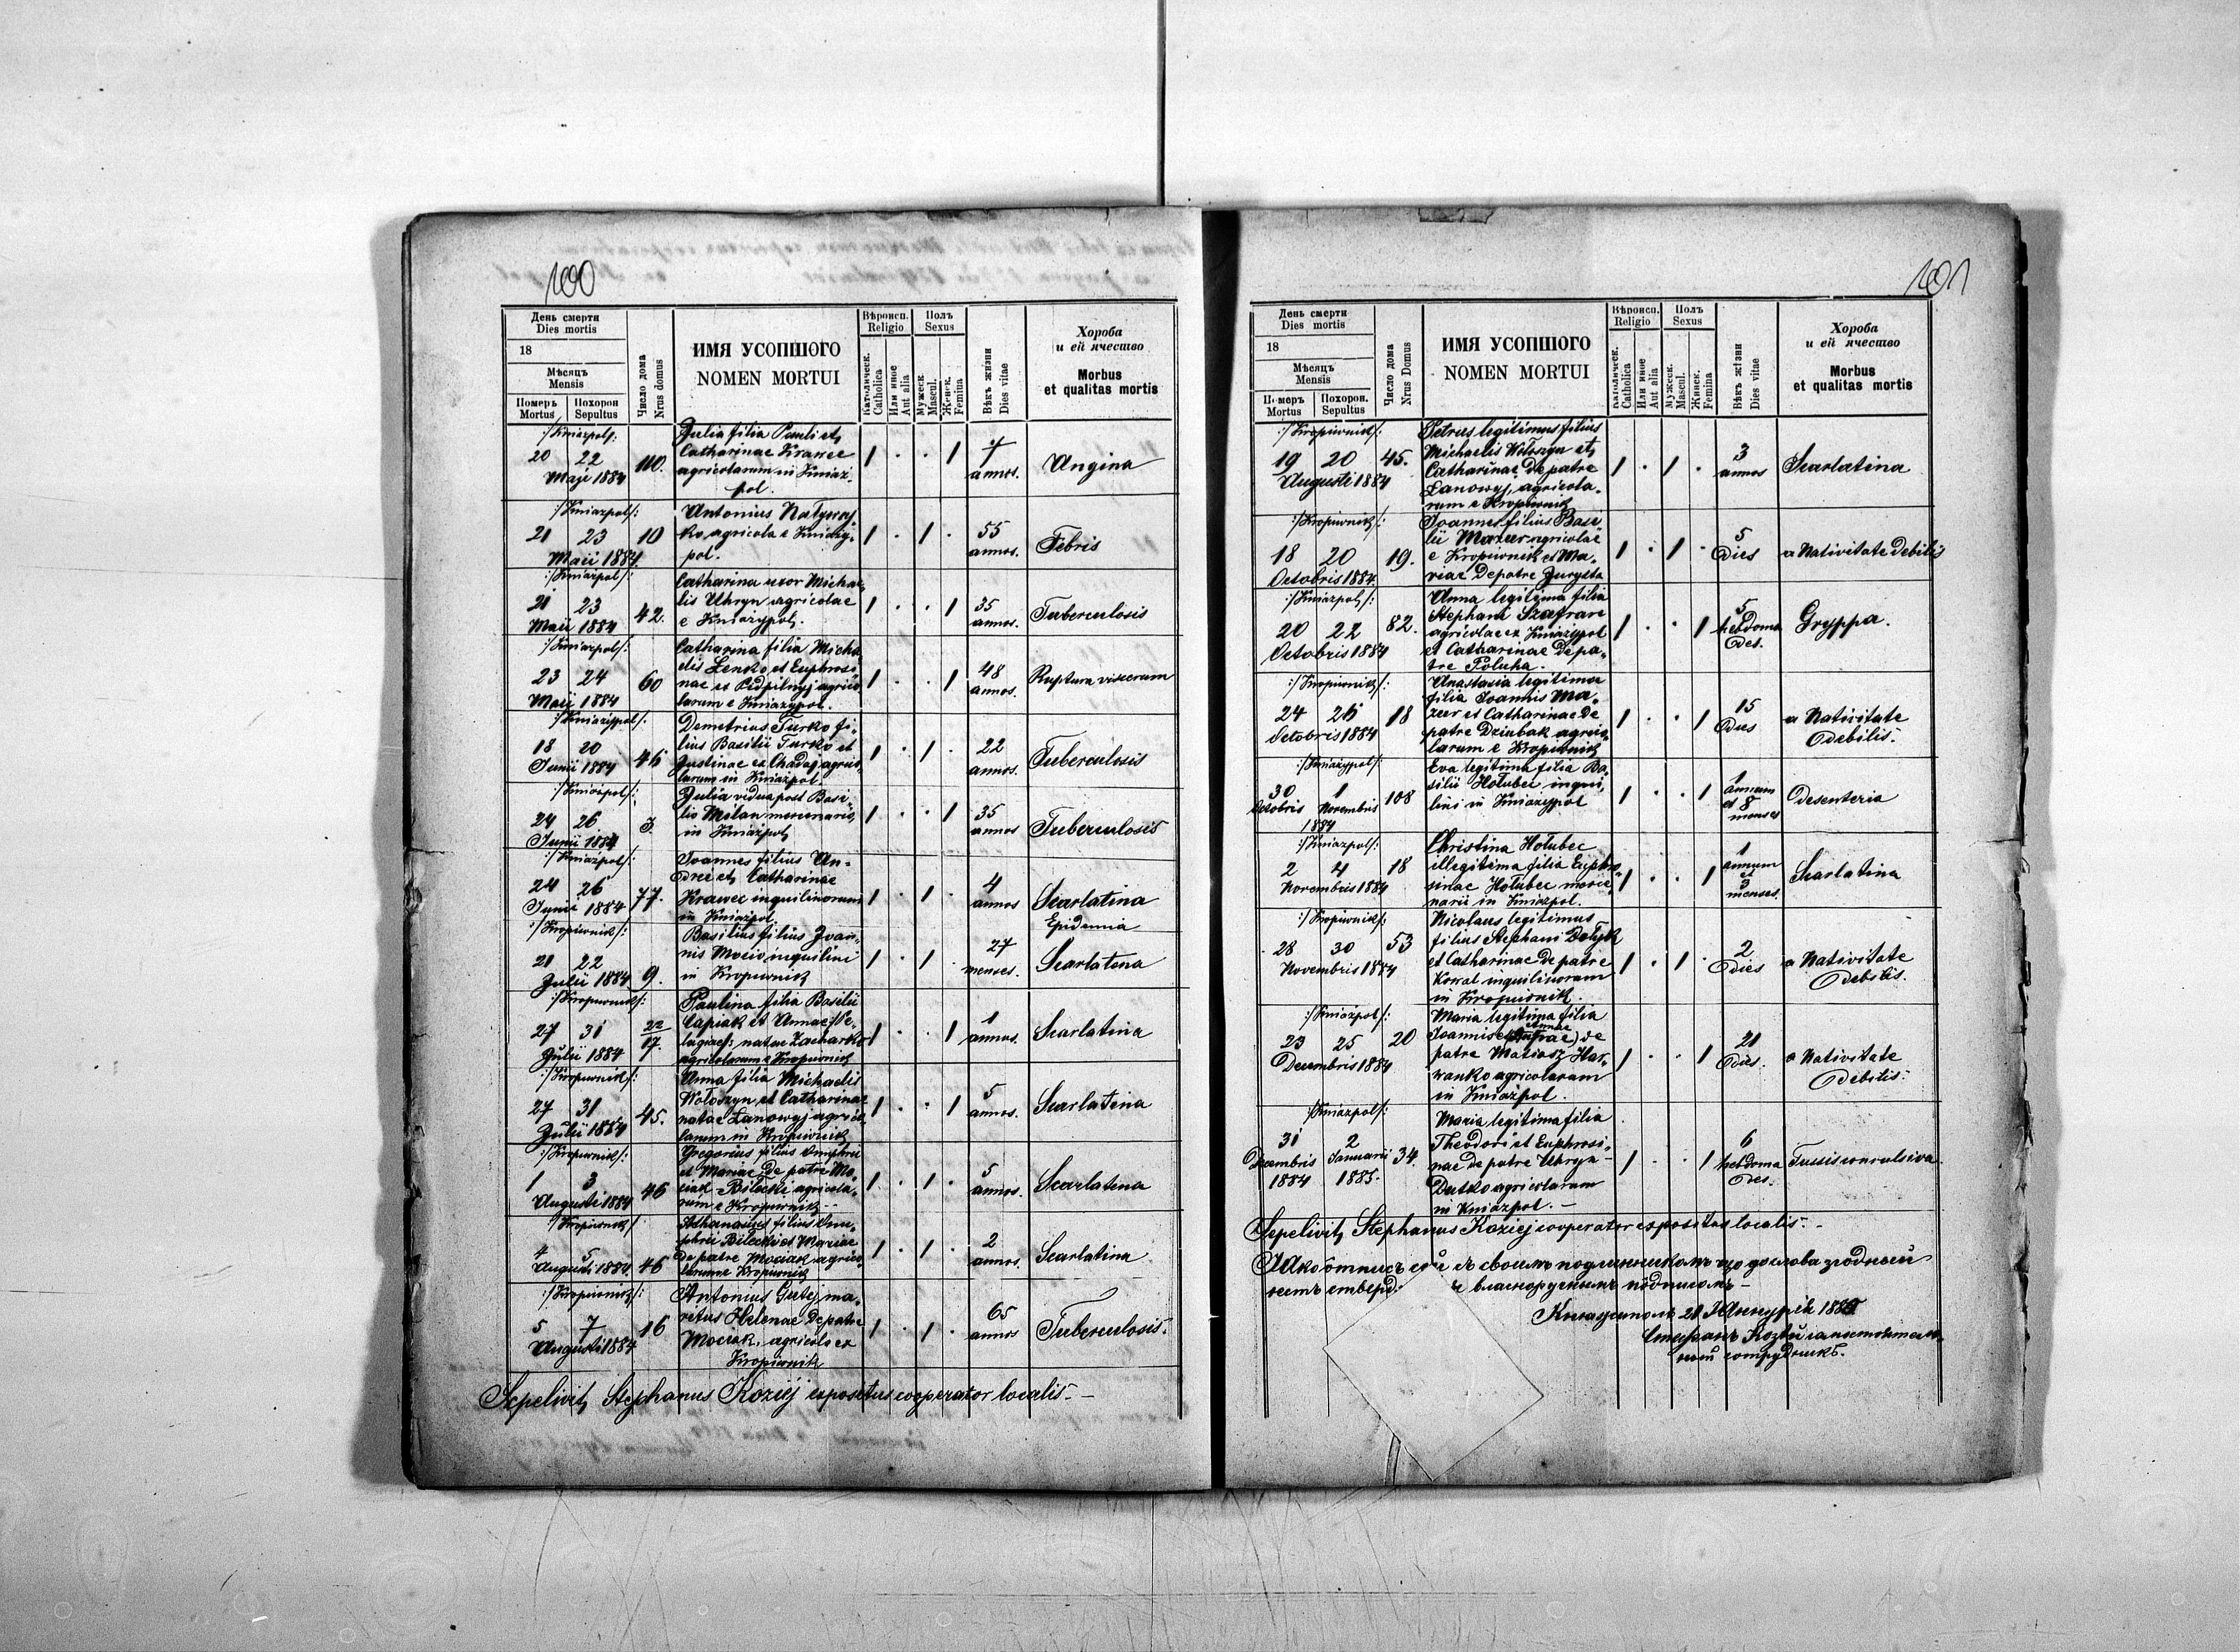 100
День смерти
Dies mortis
18
Мѣсяцъ
Mensis
Померъ
Mortus
Похорон
Sepultus
Число дома
Nrus domus
ИМЯ УСОПШОГО
NOMEN MORTUI
Вѣроисп.
Religio
Католическ.
Catholica
Или иное
Aut alia
Полъ
Sexus
Мужеск.
Mascul.
Женск.
Femina
Вѣкъ жизни
Dies vitae
Хороба
и ей ячество
Morbus
et qualitas mortis
:/Kniazpol/:
20 22
Maji 1884
110.
Julia filia Pauli et
Catharinae Krawec
agricolarum in Kniaz-
pol.
annos.
Angina
:/Kniazpol/:
21 23
Maii 1884
10
Antonius
ko agricola e
pol.
55
annos.
Febris
:/Kniazpol/:
21 23
Maii 1884
42.
Catharina uxor Michae-
lis Uhryn agricolae
e Kniazypol.
35
annos.
Tuberculosis
:/Kniazpol/:
23 24
Maii 1884
60
Catharina filia Micha
elis Lenko et Euphrosi-
nae ex Pidpilnyj agrico-
larum e Kniazypol.
48
annos.
Ruptura viscerum
:/Kniazypol/:
18 20
Junii 1884
46
Demetrius Turko fi-
lius Basilii Turko et
Justinae ex Chadaj agrico-
larum in Kniazpol
22
annos.
Tuberculosis
:/Kniazpol/:
24 26
Junii 1884
3.
Julia vidua post Basi-
lio Milan mercenario
in Kniazpol
35
annos
Tuberculosis
:/Kniazpol/:
24 26
Junii 1884
77.
Joannes filius An-
drei et Catharinae
Krawec inquilinorum
in Kniazpol.
4
annos
Scarlatina
Epidemia
:/Kropiwnik/:
21 22
Julii 1884
9.
Basilius filius Joan-
nis Mocio inquilini
in Kropiwnik
27
menses.
Scarlatina
:/Kropiwnik/:
27 31
Julii 1884
22
17.
Paulina filia Basilii
Capiak et Annae /:Pe-
lagiae:/ natae Zacharko
agricolarum e Kropiwnik
1
annos.
Scarlatina
:/Kropiwnik/:
27 31
Julii 1884
45.
Anna filia Michaelis
Wołoszyn et Catharinae
natae Lanowyj agrico-
larum in Kropiwnik
5
annos.
Scarlatina
:/Kropiwnik/:
1 3
Augusti 1884
46
Gregorius filius Onuphrii
et Mariae de patre Mo-
ciak - Bilecki agricola-
rum e Kropiwnik
5
annos.
Scarlatina
:/Kropiwnik/
4 5
Augusti 1884.
46
Athanasius filius Onu-
phrii Bilecki et Mariae
de patre Mociak agrico-
larum e Kropiwnik
2
annos.
Scarlatina
:/Kropiwnik/:
5 7
Augusti 1884
16
Antonius ma-
ritus Helenae de patre
Mociak, agricola ex
Kropiwnik
65
annos
Tuberculosis.
Sepelivit Stephanus Koziej expositus cooperator localis
101
День смерти
Dies mortis
18
Мѣсяцъ
Mensis
Померъ
Mortus
Похорон.
Sepultus
Число дома
Nrus Domus
ИМЯ УСОПШОГО
NOMEN MORTUI
Вѣроисп.
Religio
Католическ.
Catholica
Или иное
Aut alia
Полъ
Sexus
Мужеск.
Mascul.
Женск.
Femina
Вѣкъ жизни
Dies vitae
Хороба
и ей ячество
Morbus
et qualitas mortis
:/Kropiwnik/:
19 20
Augusti 1884
45.
Petrus legitimus filius
Michaelis Wołoszyn et
Catharinae de patre
Lanowyj, agricola-
rum e Kropiwnik
3
annos
Scarlatina
:/Kropiwnik/:
18 20
Octobris 1884.
19.
Joannes filius Basi-
lii Mazur agricolae
e Kropiwnik et Ma-
riae de patre Jurysta
5
dies
a Nativitate debilis
:/Kniazpol/:
20 22
Octobris 1884
82.
Anna legitima filia
Stephani Szafran
agricolae ex Kniazypol
et Catharinae de pa-
tre Poluha.
5
hebdoma
des.
Gryppa.
:/Kropiwnik/:
24 26
Octobris 1884
18
Anastasia legitima
filia Joannis Ma-
zur et Catharinae de
patre Dziubak agrico-
larum e Kropiwnik
15
dies
a Nativitate
debilis.
:/Kniazypol/:
30 1
Octobris Novembris
1884
108
Eva legitima filia Ba-
silii Hołubec inqui-
lini in Kniazypol
1
annum
et 8
menses
Desenteria
:/Kniazpol/:
2 4
Novembris 1884
18
Christina Hołubec
illegitima filia Euphro-
sinae Hołubec merce
narii in Kniazpol.
1
annum
et
3
menses.
Scarlatina
:/Kropiwnik/:
28 30
Novembris 1884
53
Nicolaus legitimus
filius Stephani
et Catharinae de patre
Kowal inquilinorum
in Kropiwnik.
2
dies
a Nativitate
debilis.
:/Kniazpol/:
23 25
Decembris 1884
20
Maria legitima filia
Joannis et Annae de
patre Matiasz Har-
wanko agricolarum
in Kniazpol.
21
dies.
a Nativitate
debilis.
:/Kniazpol/:
31 2
Decembris Januarii
1884 1885.
34.
Maria legitima filia
Theodori et Euphrosi-
nae de patre Uhryn -
Dutko agricolarum
in Kniazpol. -
6
hebdoma
des.
Tussis convulsiva
Sepelivit Stephanus Koziej cooperator expositus localis